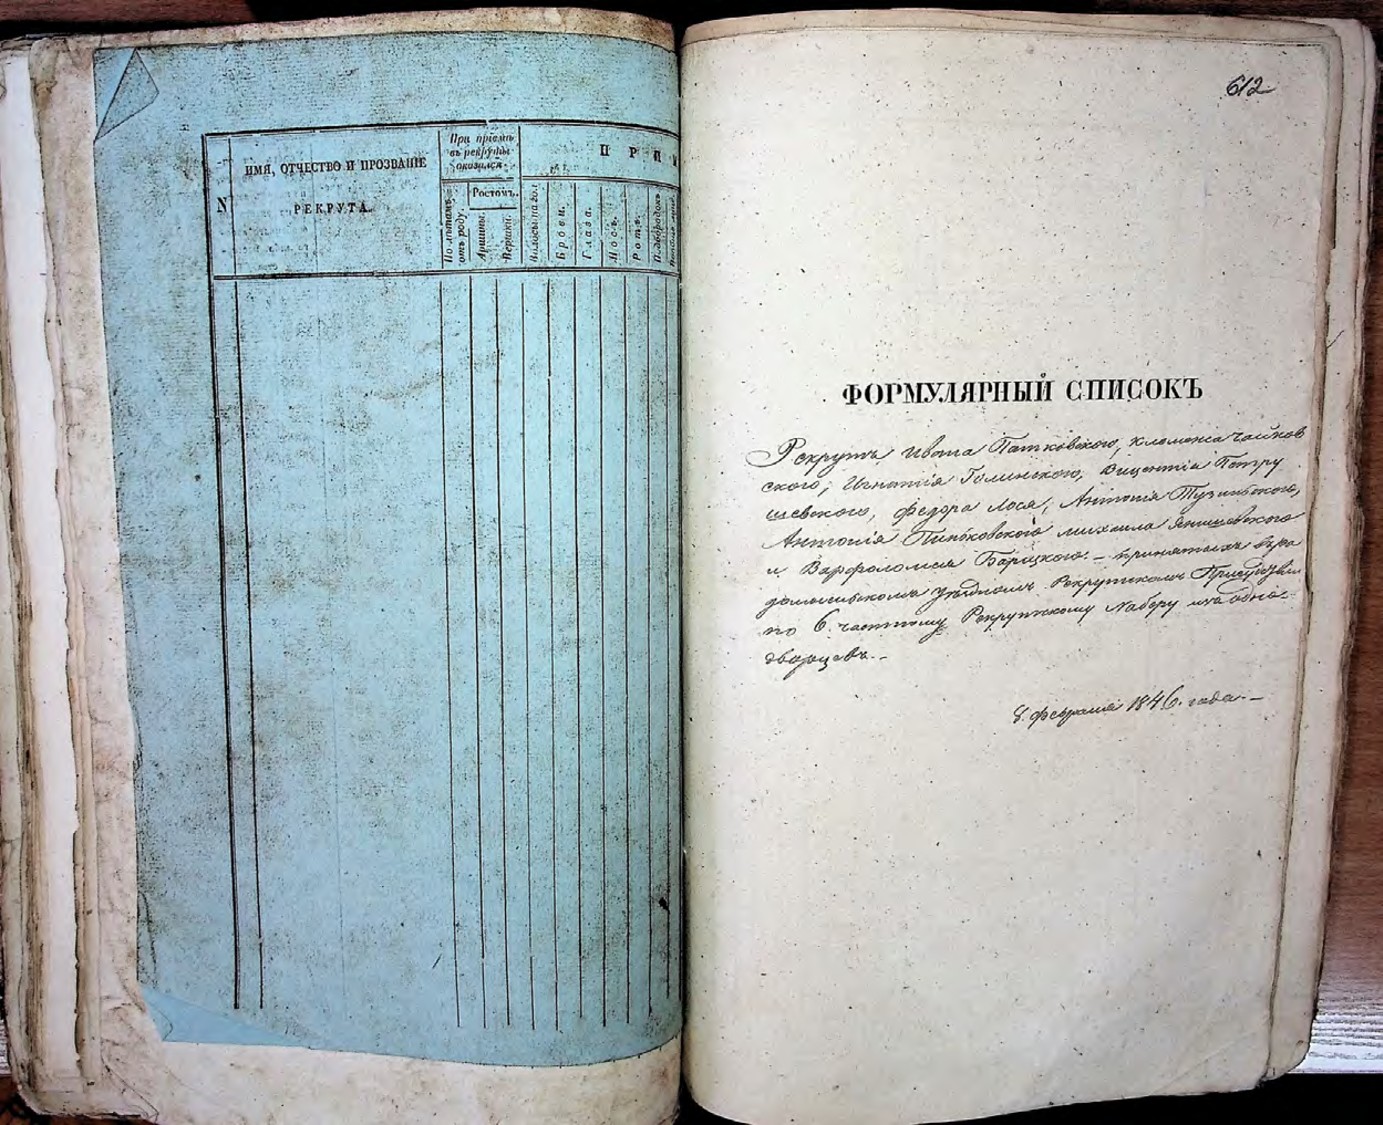 ИМЯ, ОТЧЕСТВО И ПРОЗВАНІЕ
РЕКРУТА.
N
При пріемѣ
въ рекруты
оказался
Ростомъ.
По лѣтамъ
отъ роду.
Аршины.
Вершки.
Волосы на гол.
Брови.
Глаза.
Носъ.
Ротъ.
Подбородокъ
П Р И М
612
ФОРМУЛЯРНЫЙ СПИСОКЪ
Рекрутъ Ивана Патковского, Клеменса Чайков
ского, Игнатія Голинского, Вицентія Петру
шевского, Федора Лося, Антонія Тузинского,
Антонія Пиньковского Михаила Янишевского
и Варфоломея Барицкого. – принятыхъ въ Ра
домысльскомъ уѣздномъ Рекрутскомъ Присудствіи
по 6. частному Рекрутскому Набору изъ одно-
дворцевъ. –
8. Февраля 1846. года. –